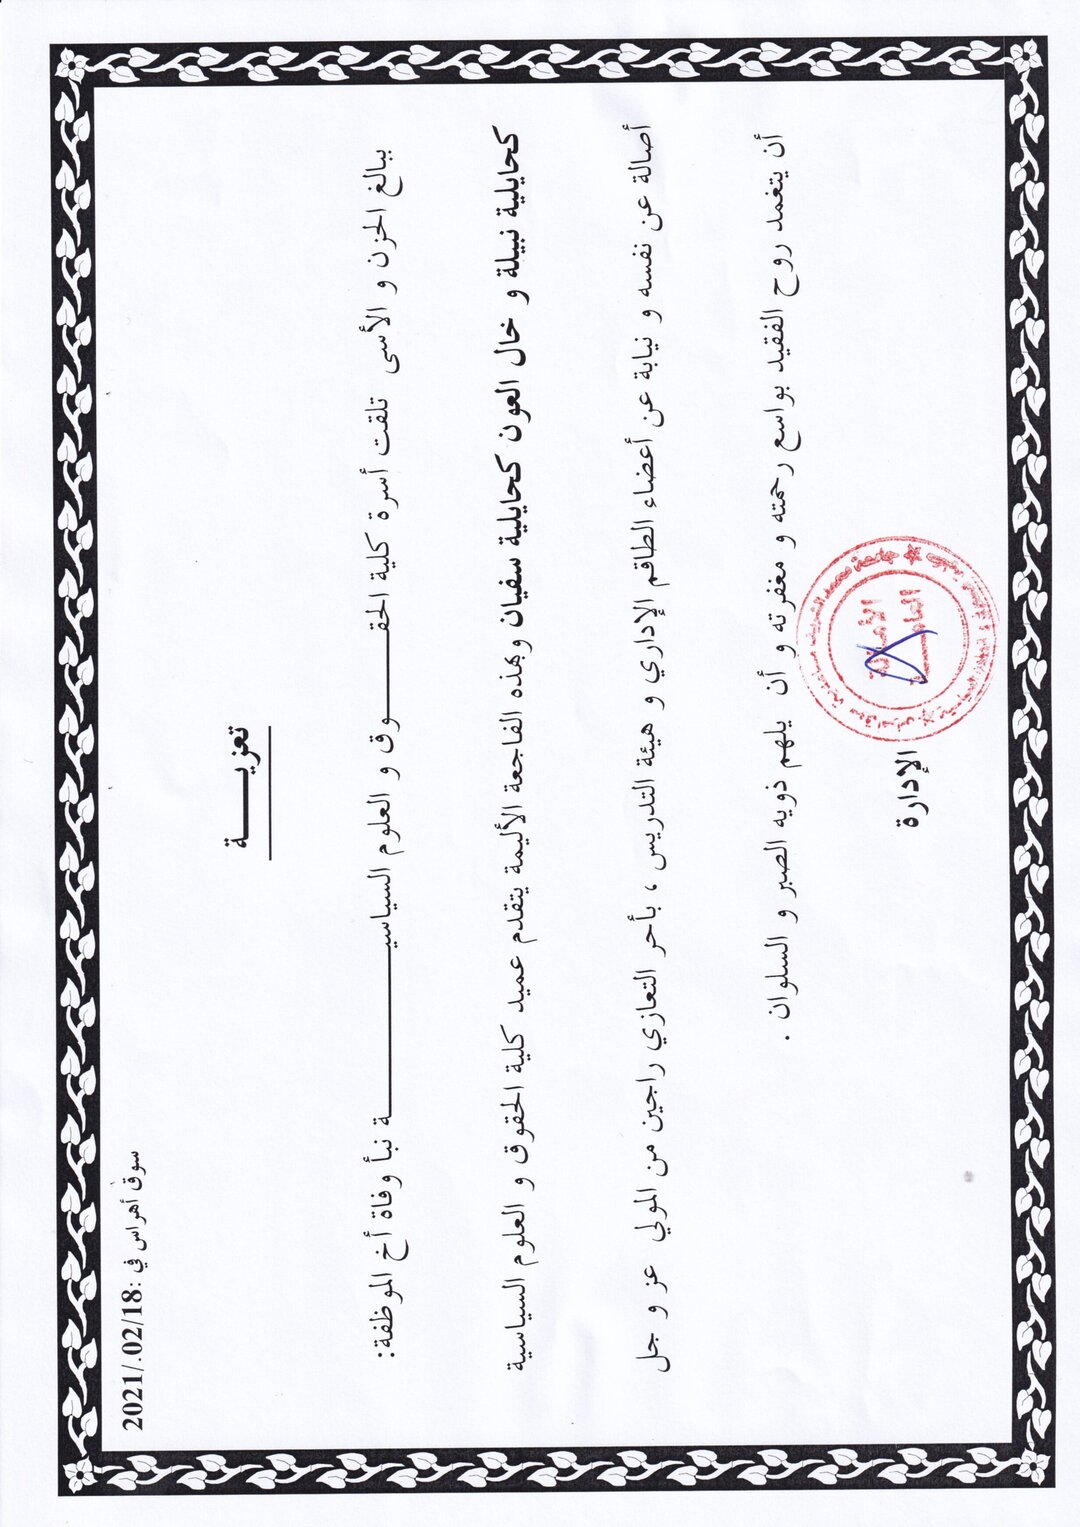 سوق أهراس في :2021/.02/18
تعزيـــــة
ببالغ الحزن و الأسى تلقت أسرة كلية الحقـــــــــوق و العلوم السياسيـــــــــــــــــة نبأ وفاة أخ الموظفة:
كحايلية نبيلة و خال العون كحايلية سفيان وبهذه الفاجعة الأليمة يتقدم عميد كلية الحقوق و العلوم السياسية
أصالة عن نفسه و نيابة عن أعضاء الطاقم الإداري و هيئة التدريس ، بأحر التعازي راجين من المولي عز و جل
أن يتغمد روح الفقيد بواسع رحمته و مغفرته و أن يلهم ذويه الصبر و السلوان .
الإدارة
جامعة محمد الشريف مساعدية سوق أهراس
الأمانة
العامـــة